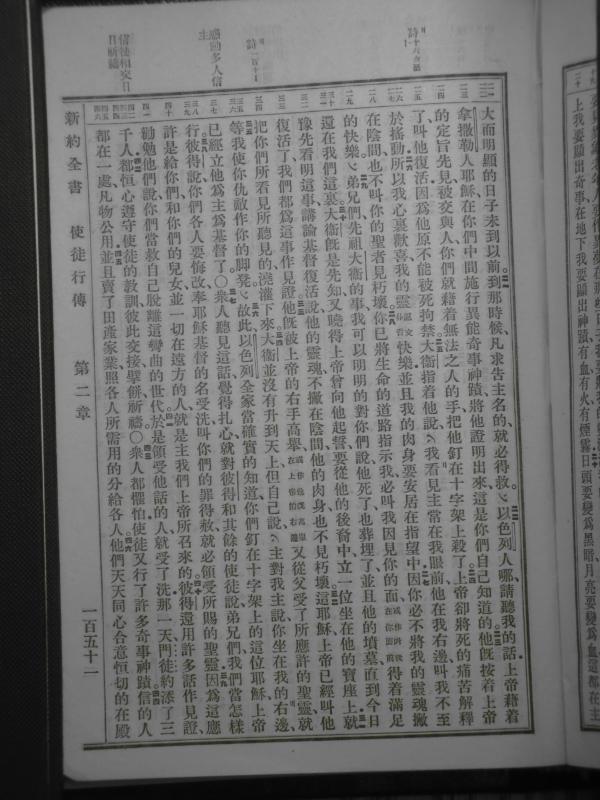 上我要顯出奇事在地下我要顯出神蹟有血有火有煙霧日頭要變爲黑暗月亮要變爲血這都在主
大而明顯的日子未到以前到那時候、凡求告主名的、就必得救、以色列人哪、請聽我的話、上帝藉着
拿撒勒人耶穌在你們中間施行異能奇事神蹟、將他證明出來、這是你們自己知道的、他旣按着上帝
的定旨先見、被交與人、你們就藉着無法之人的手、把他釘在十字架上殺了、上帝卻將死的痛苦解釋
了、叫他復活、因爲他原不能被死拘禁、大衞指着他說、我看見主常在我眼前、他在我右邊、叫我不至
於搖動、所以我心裏歡喜、我的靈快樂、並且我的肉身要安居在指望中、因你必不將我的靈魂撇
在陰間、也不叫你的聖者見朽壞、你已將生命的道路指示我、必叫我因見你的面得着滿足
的快樂、弟兄們、先祖大衞的事、我可以明明的對你們說、他死了、也葬埋了、並且他的墳墓、直到今日
還在我們這裏、大衞旣是先知、又曉得上帝曾向他起誓、要從他的後裔中、立一位坐在他的寶座上、就
豫先看明這事、講論基督復活說、他的靈魂、不撇在陰間、他的肉身、也不見朽壞、這耶穌、上帝已經叫他
復活了、我們都爲這事作見證、他旣被上帝的右手高舉、又從父受了所應許的聖靈、就
把你們所看見所聽見的、澆灌下來、大衞並沒有升到天上、但自己說、主對我主說、你坐在我的右邊、
等我使你仇敵作你的腳凳、故此以色列全家當確實的知道、你們釘在十字架上的這位耶穌、上帝
已經立他爲主爲基督了、○衆人聽見這話、覺得扎心、就對彼得和其餘的使徒說、弟兄們、我們當怎樣
行、彼得說、你們各人要悔改、奉耶穌基督的名受洗、叫你們的罪得赦、就必領受所賜的聖靈、因爲這應
許是給你們、和你們的兒女、並一切在遠方的人、就是主我們上帝所召來的、彼得還用許多話作見證、
勸勉他們說、你們當救自己脫離這彎曲的世代、於是領受他話的人、就受了洗、那一天、門徒約添了三
千人、都恒心遵守使徒的教訓、彼此交接、擘餅、祈禱、○衆人都懼怕、使徒又行了許多奇事神蹟、信的人
都在一處、凡物公用、並且賣了田產家業、照各人所需用的分給各人、他們天天同心合意、恒切的在殿
感動多人信主
信徒相交日日祈禱
新約全書　使徒行傳　第二章　一百五十一